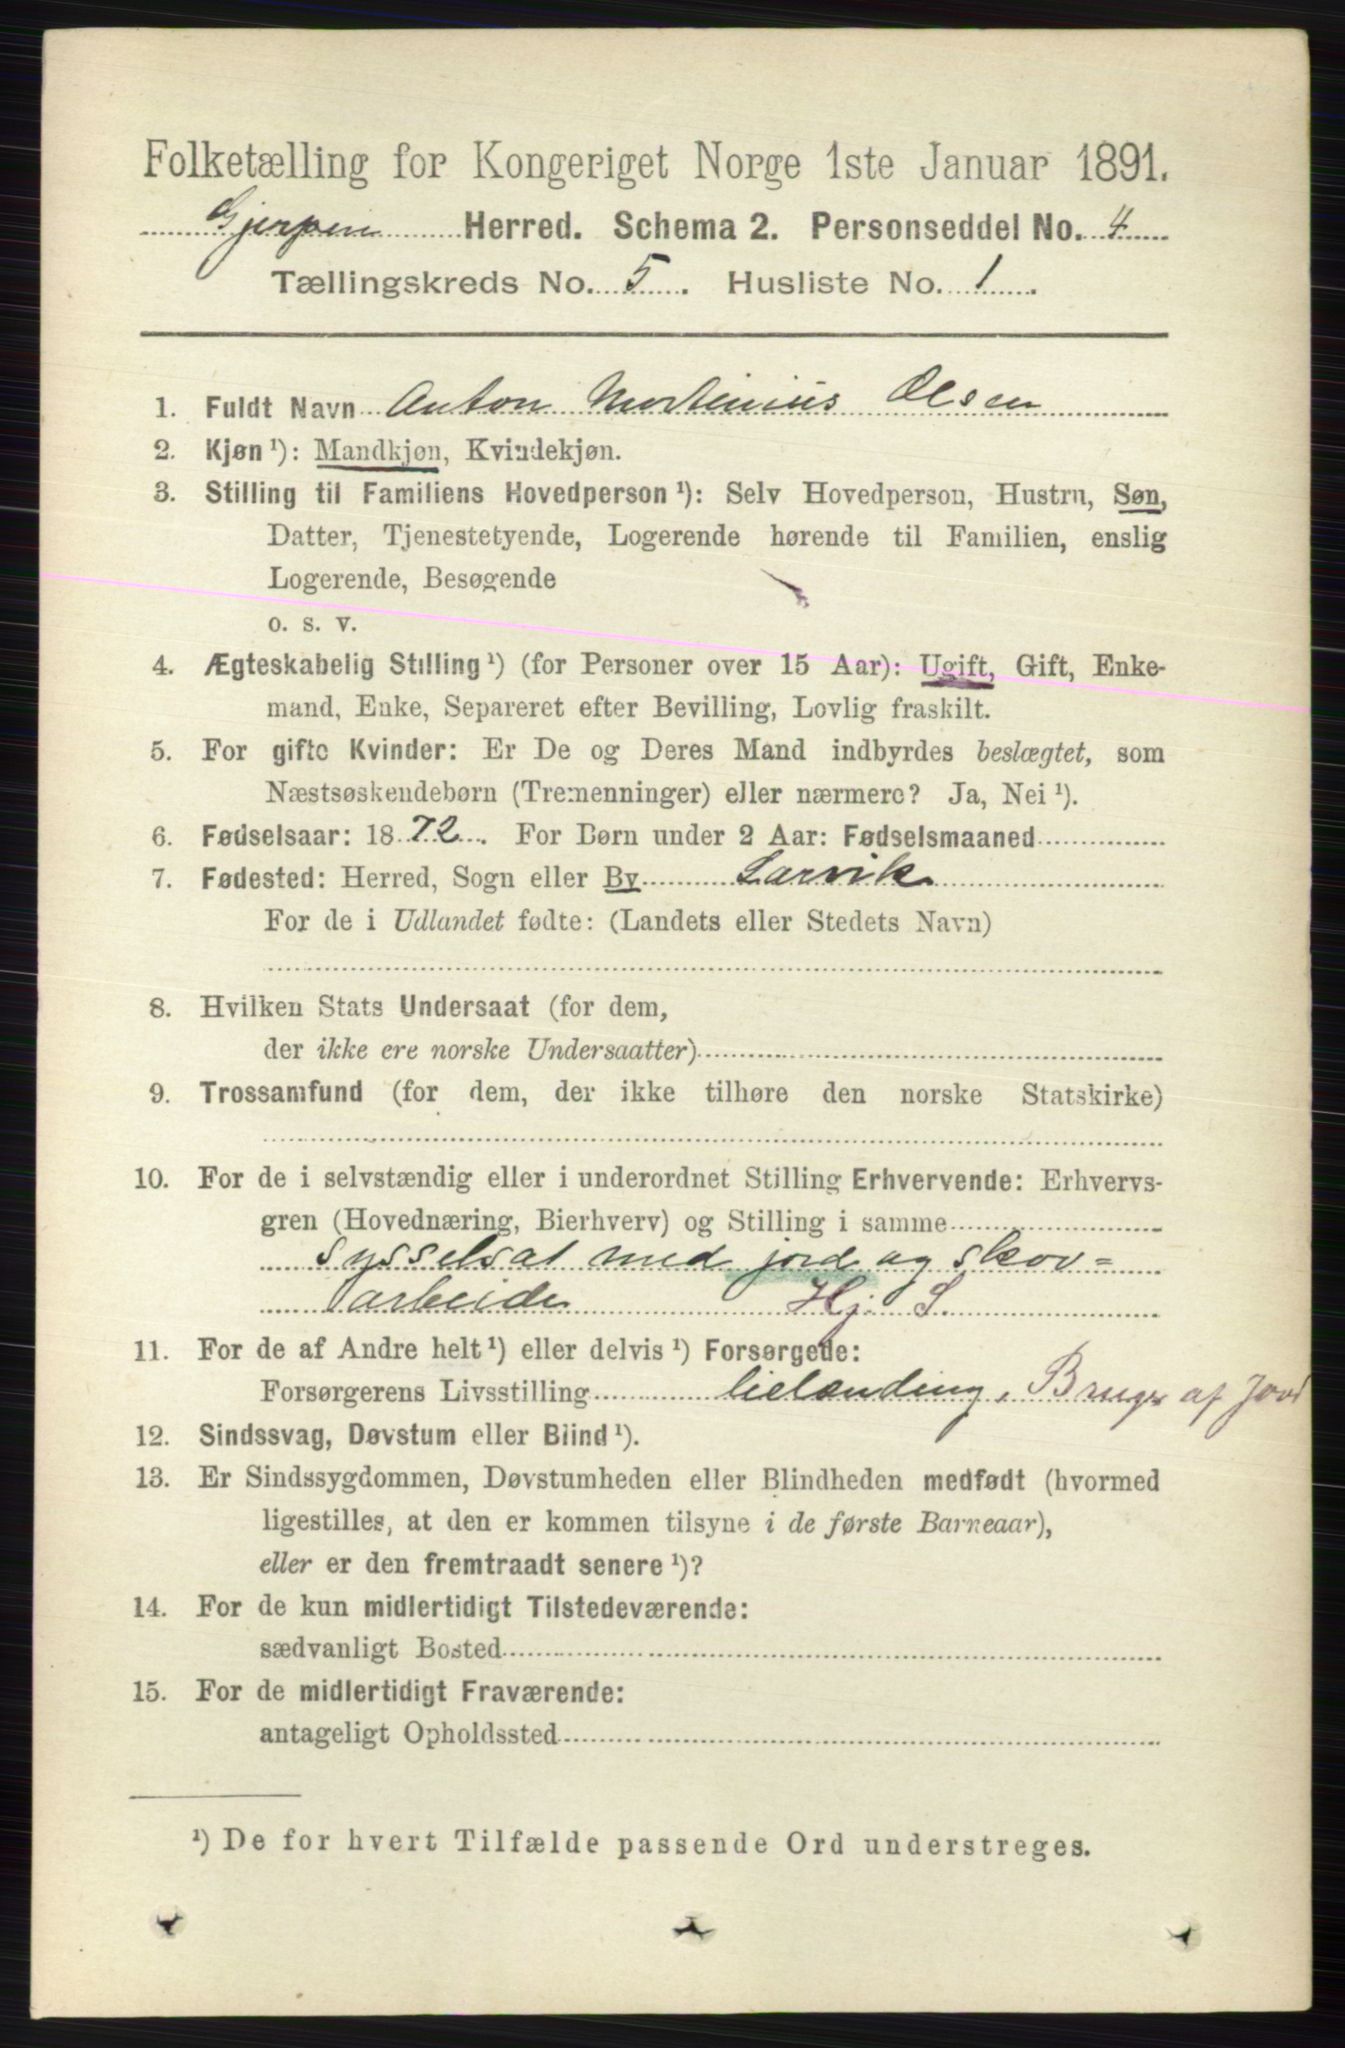 Folketælling for Kongeriget Norge 1ste Januar 1891.
Gjerpen Herred. Schema 2. Personseddel No. 4
Tællingskreds No. 5. Husliste No. 1.
1. Fuldt Navn Anton Martinius Olsen
2. Kjøn ¹): Mandkjøn, Kvindekjøn.
3. Stilling til Familiens Hovedperson ¹): Selv Hovedperson, Hustru, Søn,
Datter, Tjenestetyende, Logerende hørende til Familien, enslig
Logerende, Besøgende
o. s. v.
4. Ægteskabelig Stilling ¹) (for Personer over 15 Aar): Ugift, Gift, Enke-
mand, Enke, Separeret efter Bevilling, Lovlig fraskilt.
5. For gifte Kvinder: Er De og Deres Mand indbyrdes beslægtet, som
Næstsøskendebørn (Tremenninger) eller nærmere? Ja, Nei ¹).
6. Fødselsaar: 1872. For Børn under 2 Aar: Fødselsmaaned
7. Fødested: Herred, Sogn eller By Larvik
For de i Udlandet fødte: (Landets eller Stedets Navn)
8. Hvilken Stats Undersaat (for dem,
der ikke ere norske Undersaatter)
9. Trossamfund (for dem, der ikke tilhøre den norske Statskirke)
10. For de i selvstændig eller i underordnet Stilling Erhvervende: Erhvervs-
gren (Hovednæring, Bierhverv) og Stilling i samme
sysselsat med jord og skov=
arbeide Hj. S.
11. For de af Andre helt ¹) eller delvis ¹) Forsørgede:
Forsørgerens Livsstilling leilænding, Bruger af Jord
12. Sindssvag, Døvstum eller Blind ¹).
13. Er Sindssygdommen, Døvstumheden eller Blindheden medfødt (hvormed
ligestilles, at den er kommen tilsyne i de første Barneaar),
eller er den fremtraadt senere ¹)?
14. For de kun midlertidigt Tilstedeværende:
sædvanligt Bosted
15. For de midlertidigt Fraværende:
antageligt Opholdssted
¹) De for hvert Tilfælde passende Ord understreges.